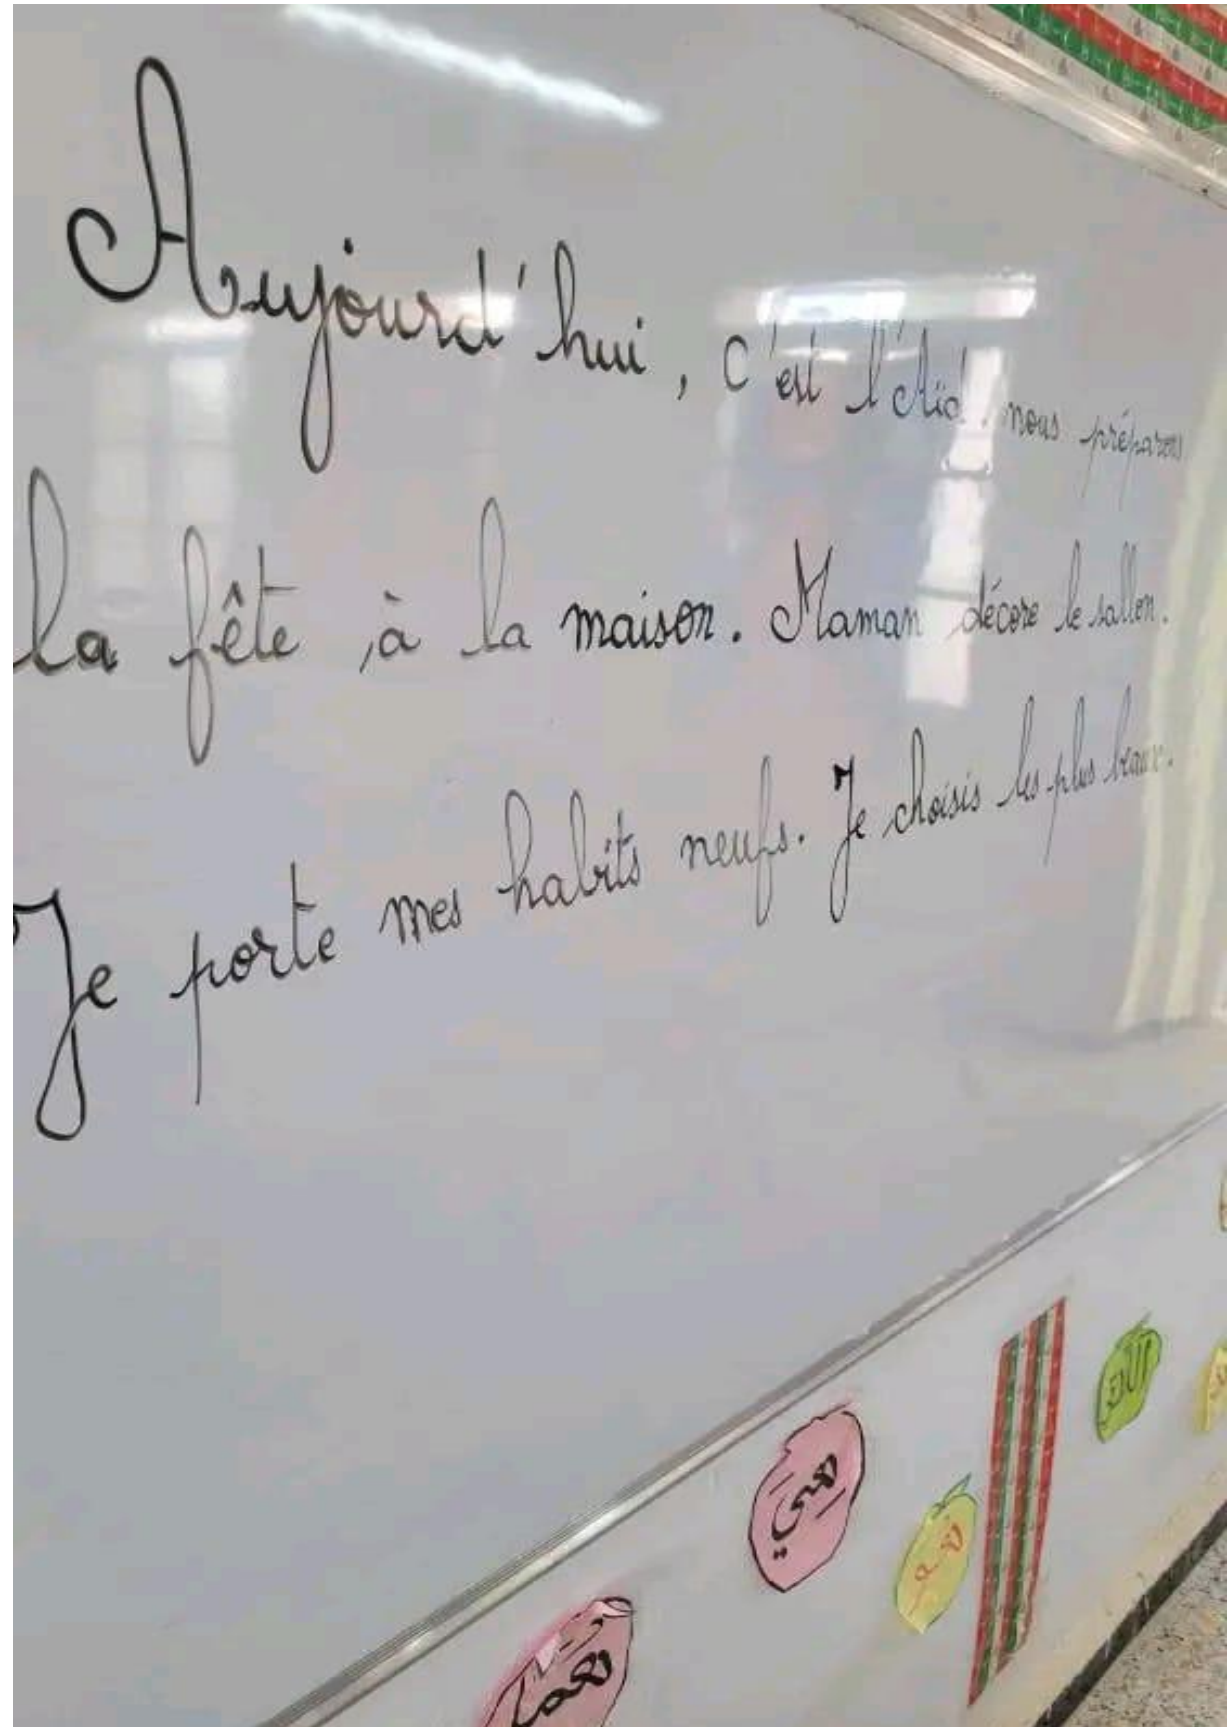 Aujourd'hui, c'est l'Aïd. nous préparons
la fête, à la maison. Maman décore le sallon.
Je porte mes habits neufs. Je choisis les plus beaux.
هي